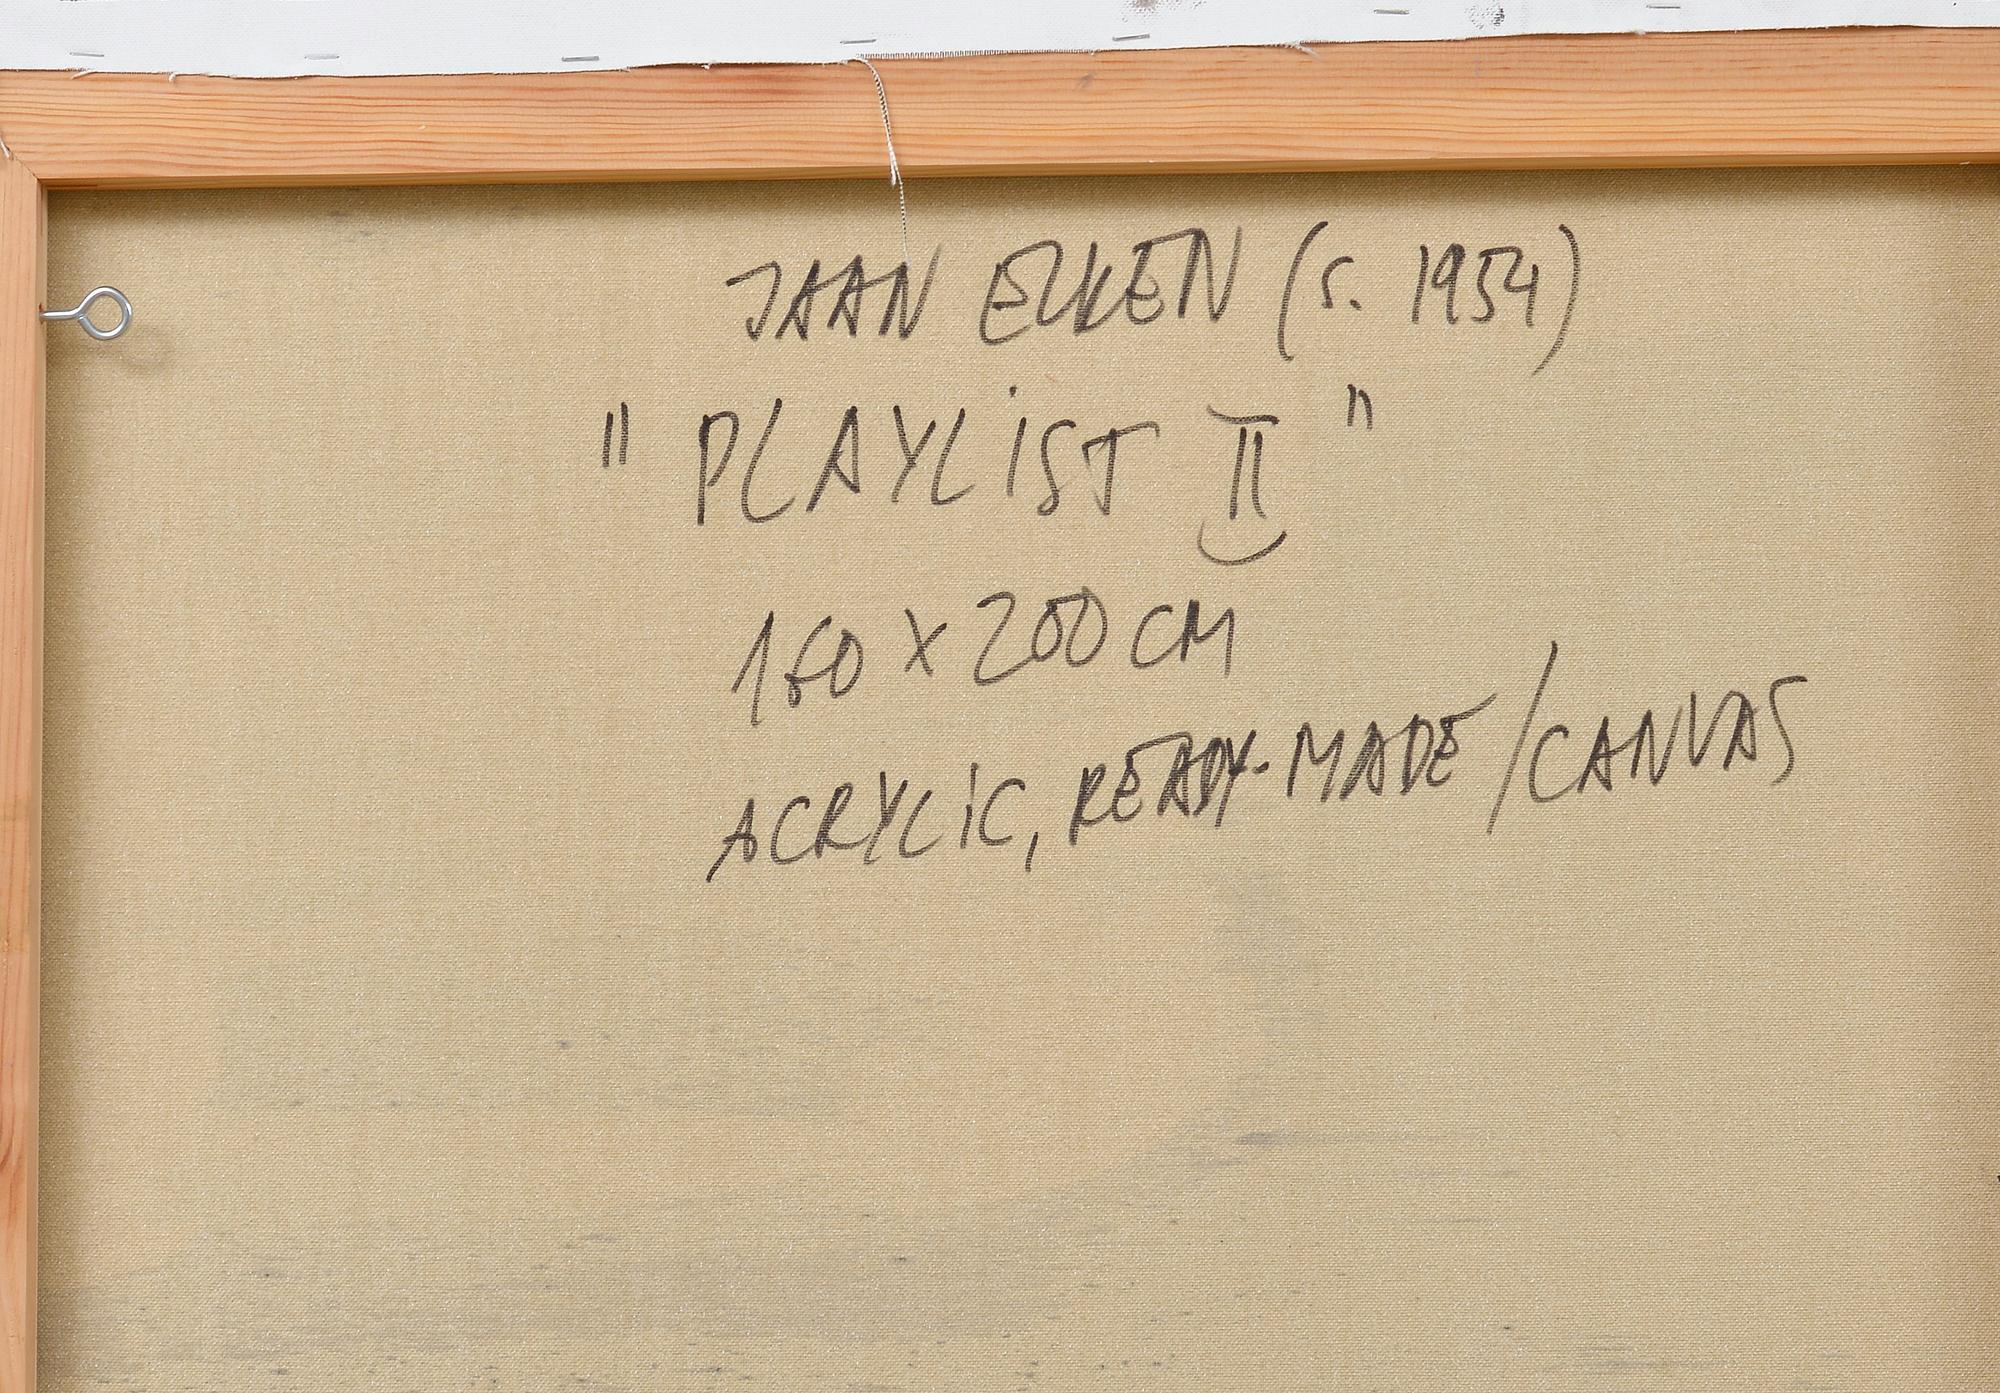 JAAN ELKEN (S. 1954)
"PLAYLIST II"
160 X 200 CM
ACRYLIC, READY-MADE/CANVAS